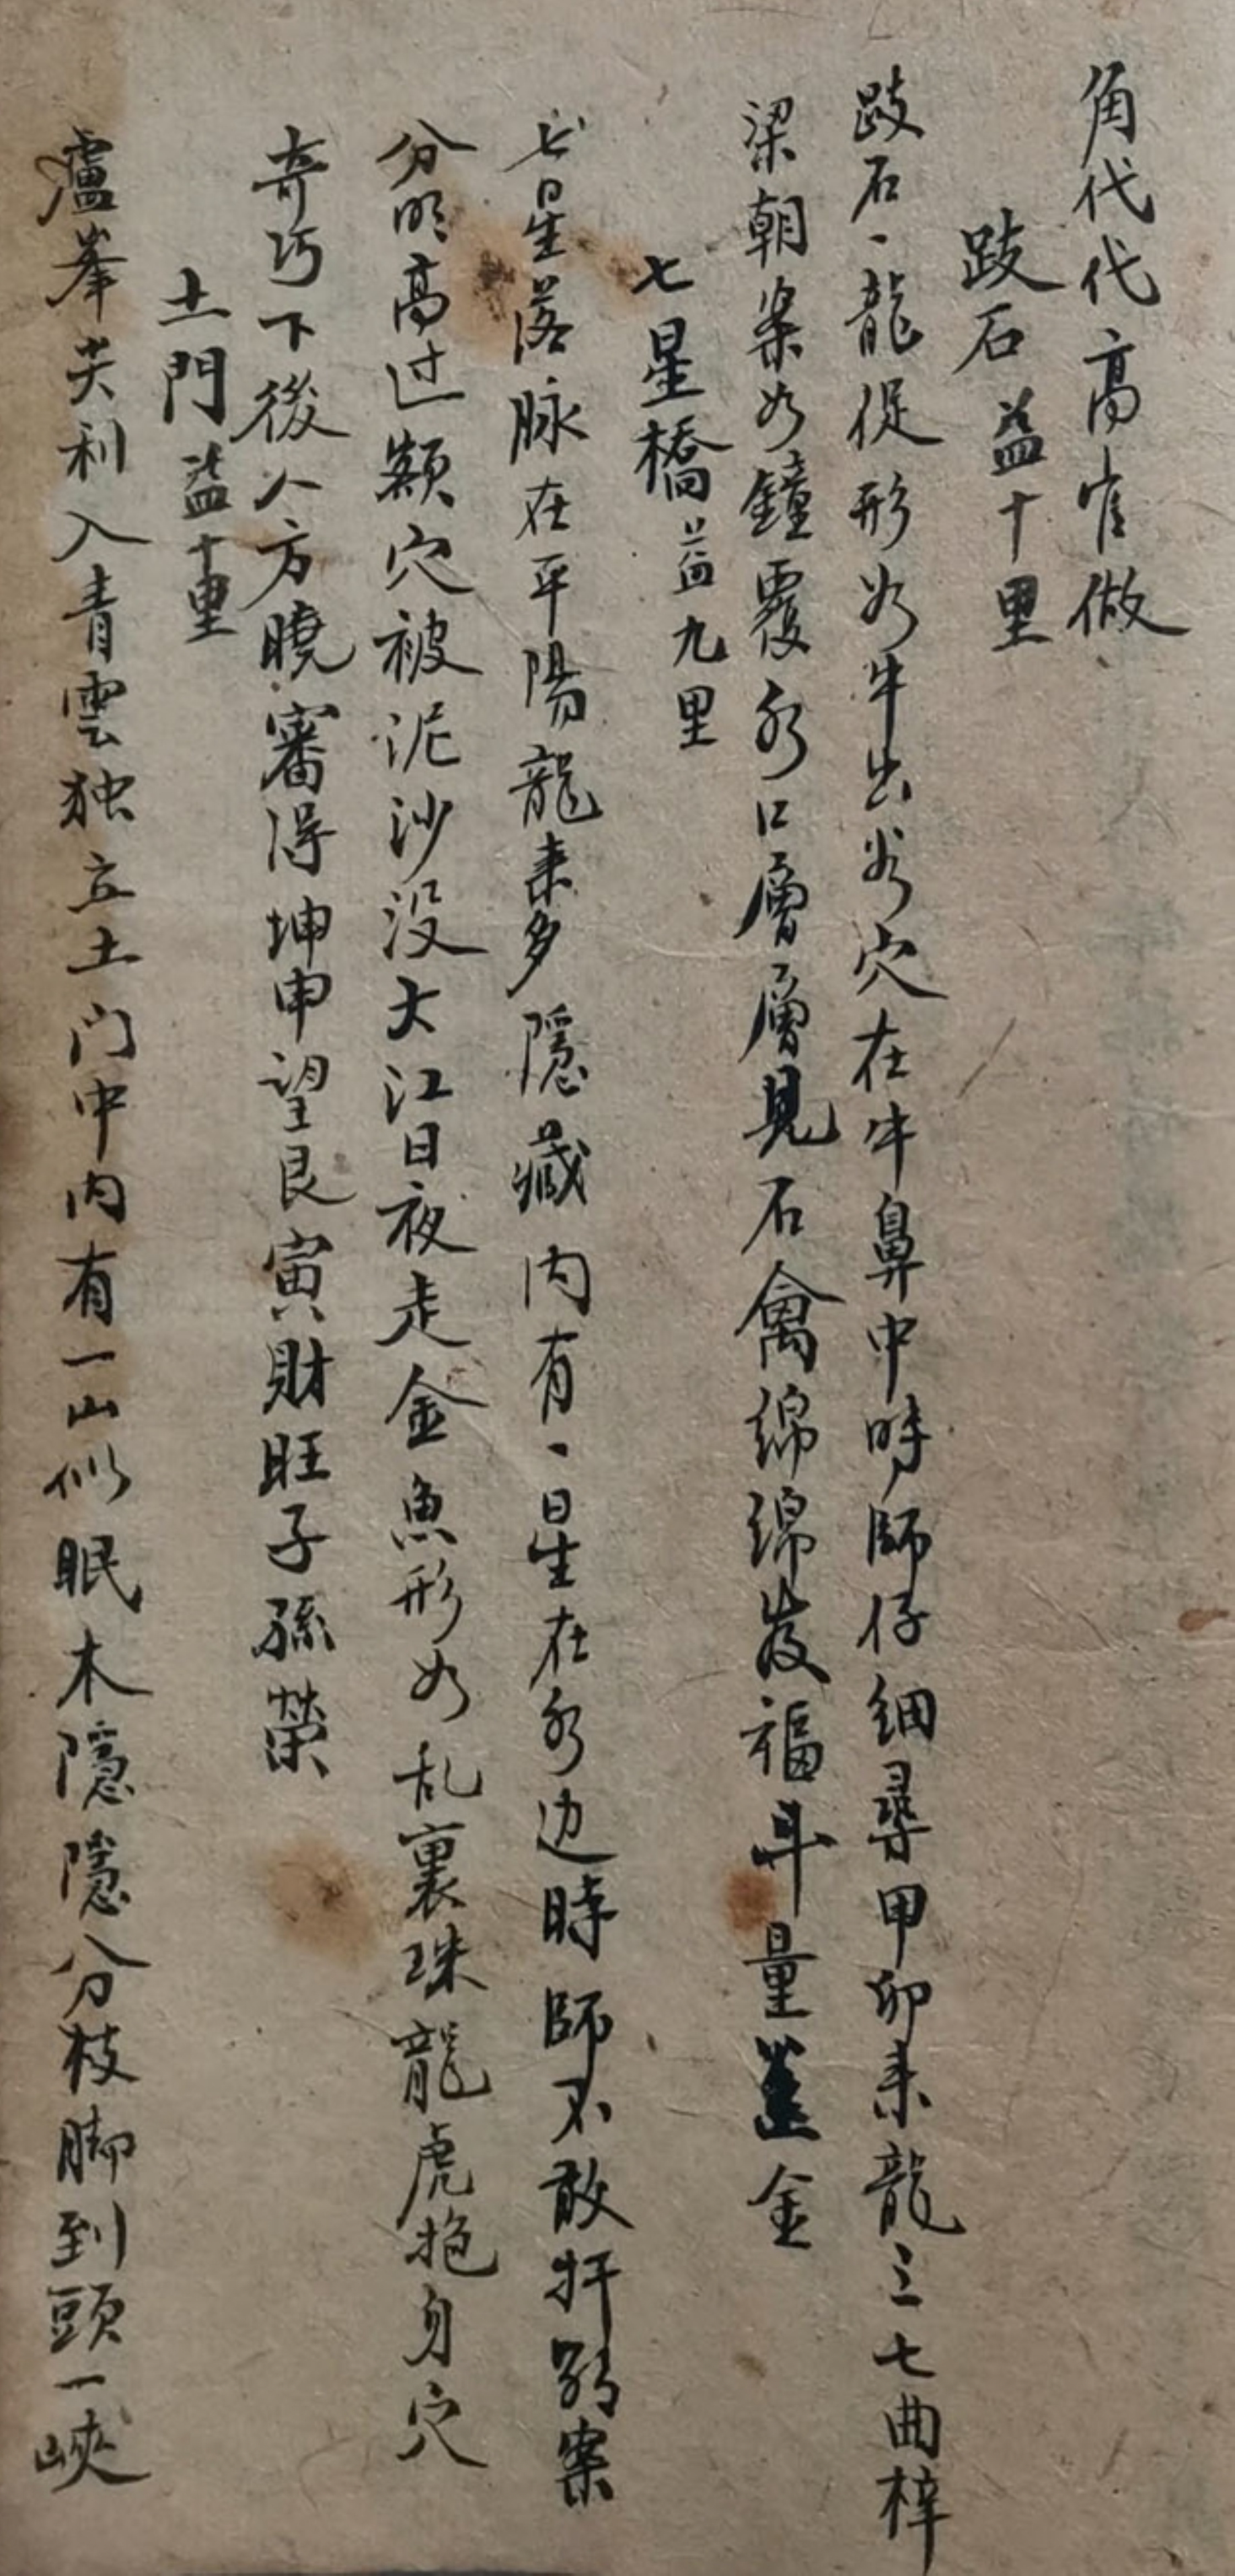 角代代高官做
跂石 益十里
跂石一龍促形如牛出欄穴在牛鼻中時師仔細尋甲卯來龍三七曲梓
梁朝案如鐘覆水口層層見石禽綿綿发福斗量金
七星橋 益九里
七星落脉在平陽龍来多隱藏内有一星在水边時師不敢扦朝案
分明高过額穴被泥沙没大江日夜走金魚形如乱裏珠龍虎抱身穴
奇巧下後人方曉審得坤申望艮寅財旺子孫荣
土門 益十里
盧峯尖利入青雲独立土门中内有一山似眠木隱隱分枝脚到頭一峽